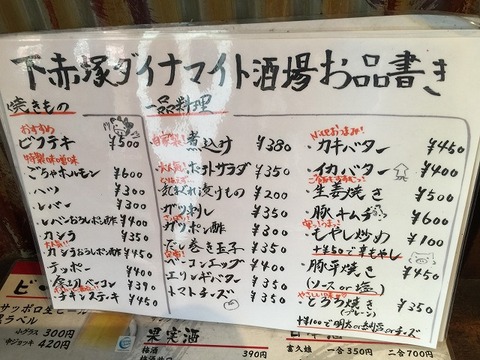 下赤塚ダイナマイト酒場お品書き
焼きもの
おすすめ
ビフテキ ¥500
特製味噌味
ごちゃホルモン ¥600
ハツ ¥300
レバー ¥300
レバーおろしポン酢 ¥400
カシラ ¥350
カシラおろしポン酢 ¥450
テッポー ¥400
チキンステーキ ¥450
¥390
一品料理
自家製!煮込み ¥380
ポテトサラダ ¥350
漬けもの ¥200
ガツ刺し ¥350
ガツポン酢 ¥300
だし巻き玉子 ¥350
ベーコンエッグ ¥400
エリンギバター ¥350
トマトチーズ ¥350
カキバター ¥450
イカバター ¥400
生姜焼き ¥500
豚キムチ ¥600
もやし炒め ¥100
+¥50で辛もやし
豚平焼き ¥450
(ソース or 塩)
とろろ焼き ¥350
(プレーン)
サッポロ生ビール
黒ラベル
小グラス 300円
中ジョッキ 420円
果実酒
梅酒 390円
富久娘 一合 350円 二合 700円